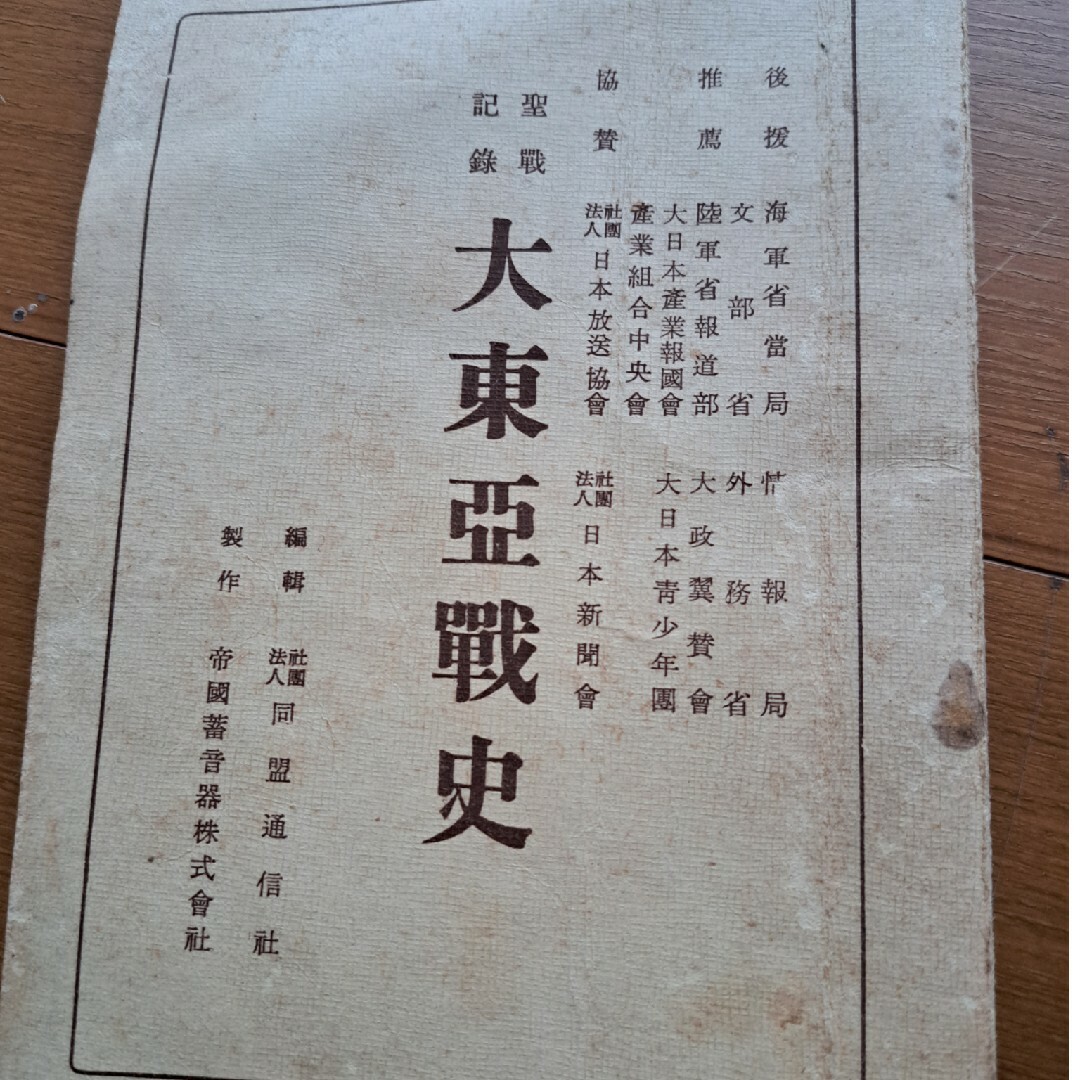 後援 海軍省當局 情報局
文部省 外務省
推薦 陸軍省報道部 大政翼賛會
大日本產業報國會 大日本靑少年團
產業組合中央會
協賛 社團法人日本放送協會 社團法人日本新聞會
聖戰記錄 大東亞戰史
編輯 社團法人同盟通信社
製作 帝國蓄音器株式會社